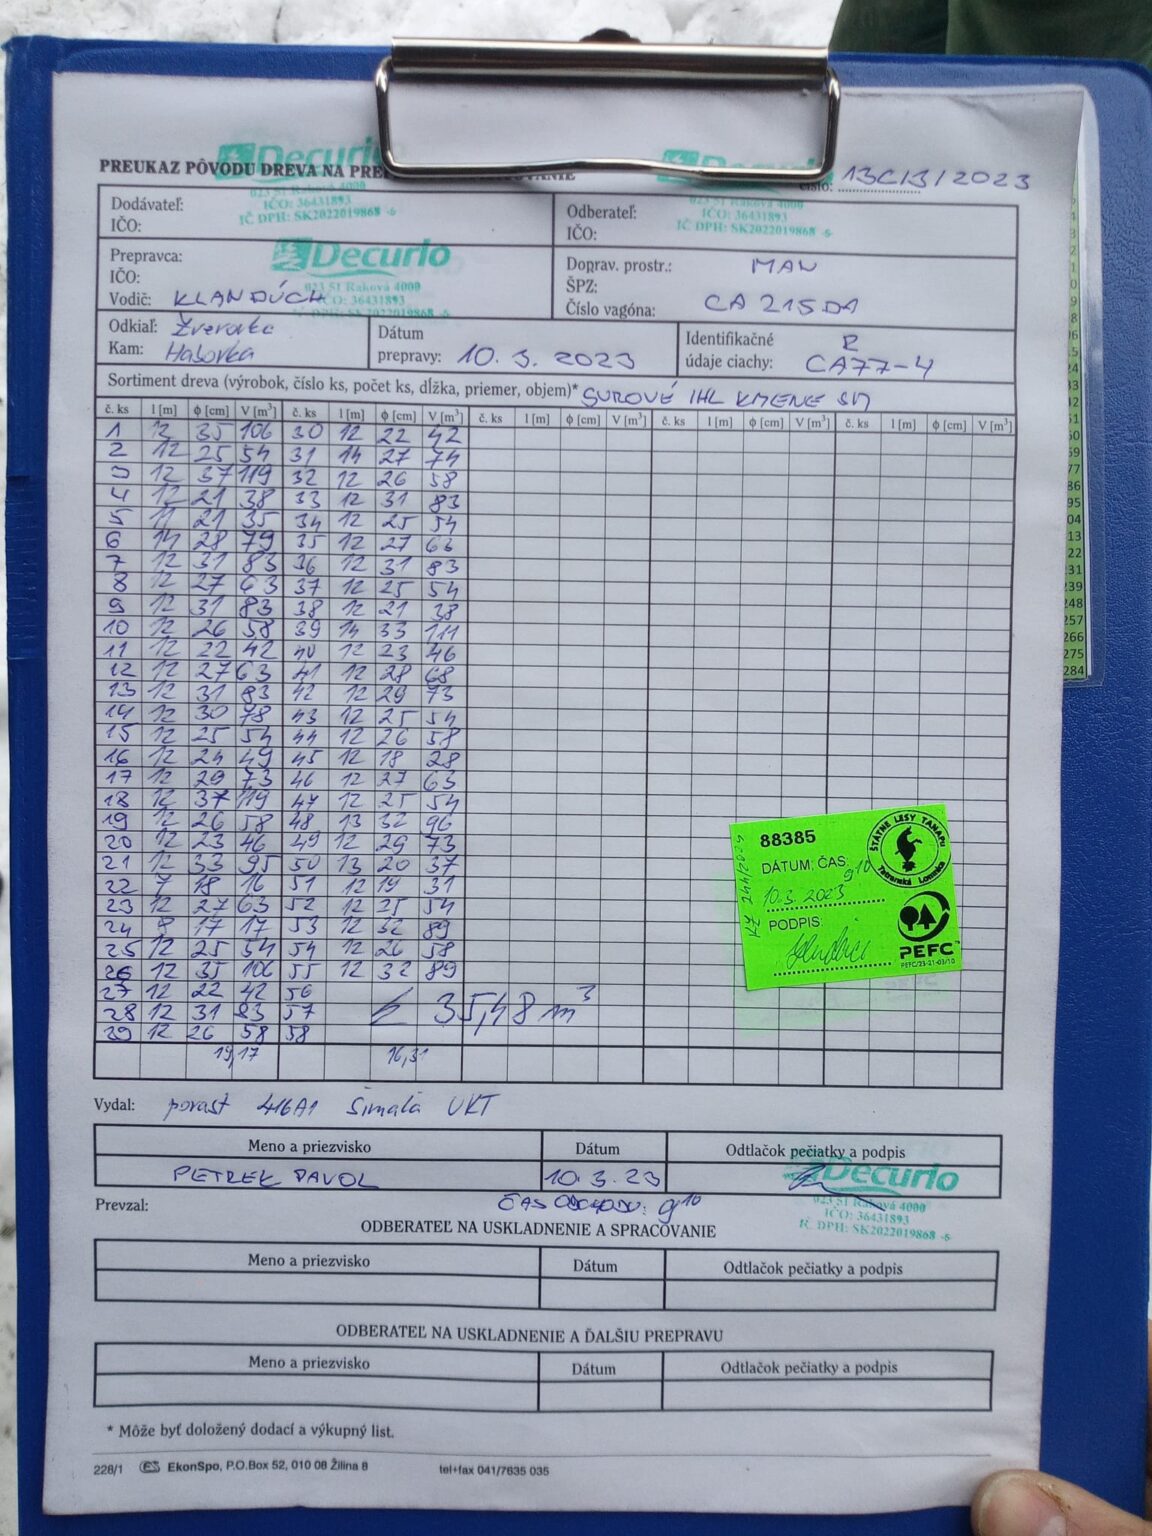 Decurio
Decurio
PREUKAZ PÔVODU DREVA NA
číslo: 13C/3/2023
023 51 Raková 4000
IČO: 36431893
IČ DPH: SK2022019868 -6-
023 51 Raková 4000
IČO: 36431893
IČ DPH: SK2022019868 -6-
Dodávateľ:
IČO:
Odberateľ:
IČO:
Decurio
023 51 Raková 4000
IČO: 36431893
Prepravca:
IČO:
Vodič: KLANDÚCH
Doprav. prostr.: MAN
ŠPZ:
Číslo vagóna: CA 215 DA
Odkiaľ: Zverovka
Kam: Habovka
Dátum
prepravy: 10. 3. 2023
Identifikačné R
údaje ciachy: CA77-4
Sortiment dreva (výrobok, číslo ks, počet ks, dĺžka, priemer, objem)* SUROVÉ IHL KMENE SM
č. ks l [m] ϕ [cm] V [m³] č. ks l [m] ϕ [cm] V [m³] č. ks l [m] ϕ [cm] V [m³] č. ks l [m] ϕ [cm] V [m³] č. ks l [m] ϕ [cm] V [m³]
1 35 106 30 12 22 42
2 12 25 54 31 14 27 74
3 12 37 119 32 12 26 58
4 12 21 38 33 12 31 83
5 11 21 35 34 12 25 54
6 14 28 79 35 12 27 63
7 12 31 83 36 12 31 83
8 12 27 63 37 12 25 54
9 12 31 83 38 12 21 38
10 12 26 58 39 14 33 111
11 12 22 42 40 12 23 46
12 12 27 63 41 12 28 68
13 12 31 83 42 12 29 73
14 12 30 78 43 12 25 54
15 12 25 54 44 12 26 58
16 12 24 49 45 12 18 28
17 12 29 73 46 12 27 63
18 12 37 119 47 12 25 54
19 12 26 58 48 13 32 96
20 12 23 46 49 12 29 73
21 12 33 95 50 13 20 37
22 7 18 16 51 12 19 31
23 12 27 63 52 12 25 54
24 8 17 17 53 12 32 89
25 12 25 54 54 12 26 58
26 12 35 106 55 12 32 89
27 12 22 42 56
28 12 31 83 57 35,48 m³
29 12 26 58 58
19,17 16,31
88385
ŠTÁTNE LESY TANAPu
Tatranská Lomnica
DÁTUM, ČAS: 9¹⁰
10.3.2023
PODPIS:
PEFC
PEFC/23-21-03/10
Vydal: porast 416A1 Šimala UKT
Meno a priezvisko Dátum Odtlačok pečiatky a podpis
PETREK PAVOL 10.3.23
Decurio
023 51 Raková 4000
IČO: 36431893
IČ DPH: SK2022019868 -6-
Prevzal: ČAS ODCHODU: 9¹⁰
ODBERATEĽ NA USKLADNENIE A SPRACOVANIE
Meno a priezvisko Dátum Odtlačok pečiatky a podpis
ODBERATEĽ NA USKLADNENIE A ĎALŠIU PREPRAVU
Meno a priezvisko Dátum Odtlačok pečiatky a podpis
* Môže byť doložený dodací a výkupný list.
228/1 ES EkonSpo, P.O.Box 52, 010 08 Žilina 8 tel+fax 041/7635 035